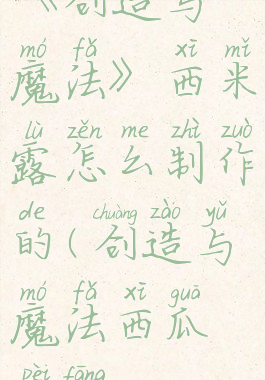 《创造与
mó fǎ xī mǐ
魔法》 西米
lù zěn me zhì zuò
露怎么制作
de chuàng zào yǔ
的(创造与
mó fǎ xī guā
魔法西瓜
pèi fāng